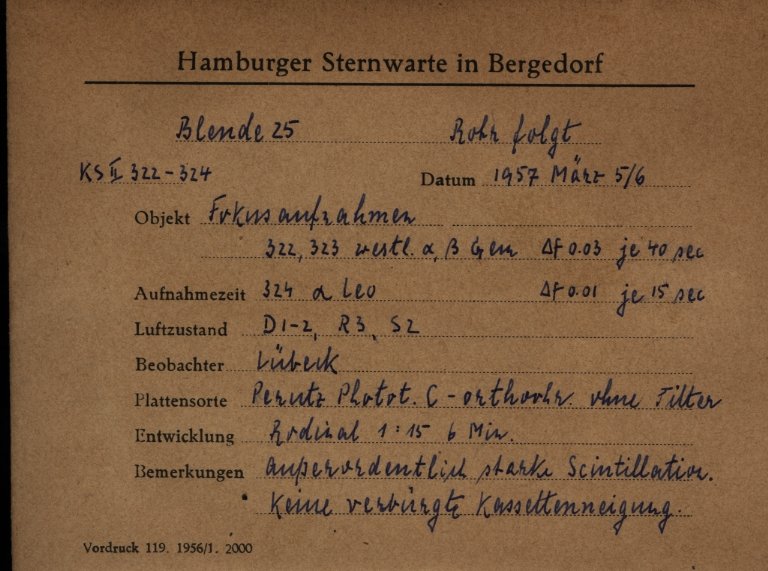 Hamburger Sternwarte in Bergedorf
Blende 25 Rohr folgt
KS II 322-324 Datum 1957 März 5/6
Objekt Fokusaufnahmen
322, 323 westl. α, β Gem Δf 0.03 je 40 sec
Aufnahmezeit 324 α Leo Δf 0.01 je 15 sec
Luftzustand D1-2, R3, S2
Beobachter Lübeck
Plattensorte Perutz Photot. C-orthochr. ohne Filter
Entwicklung Rodinal 1:15 6 Min.
Bemerkungen außerordentlich starke Scintillation.
Keine verbürgte Kassettenneigung.
Vordruck 119. 1956/1. 2000